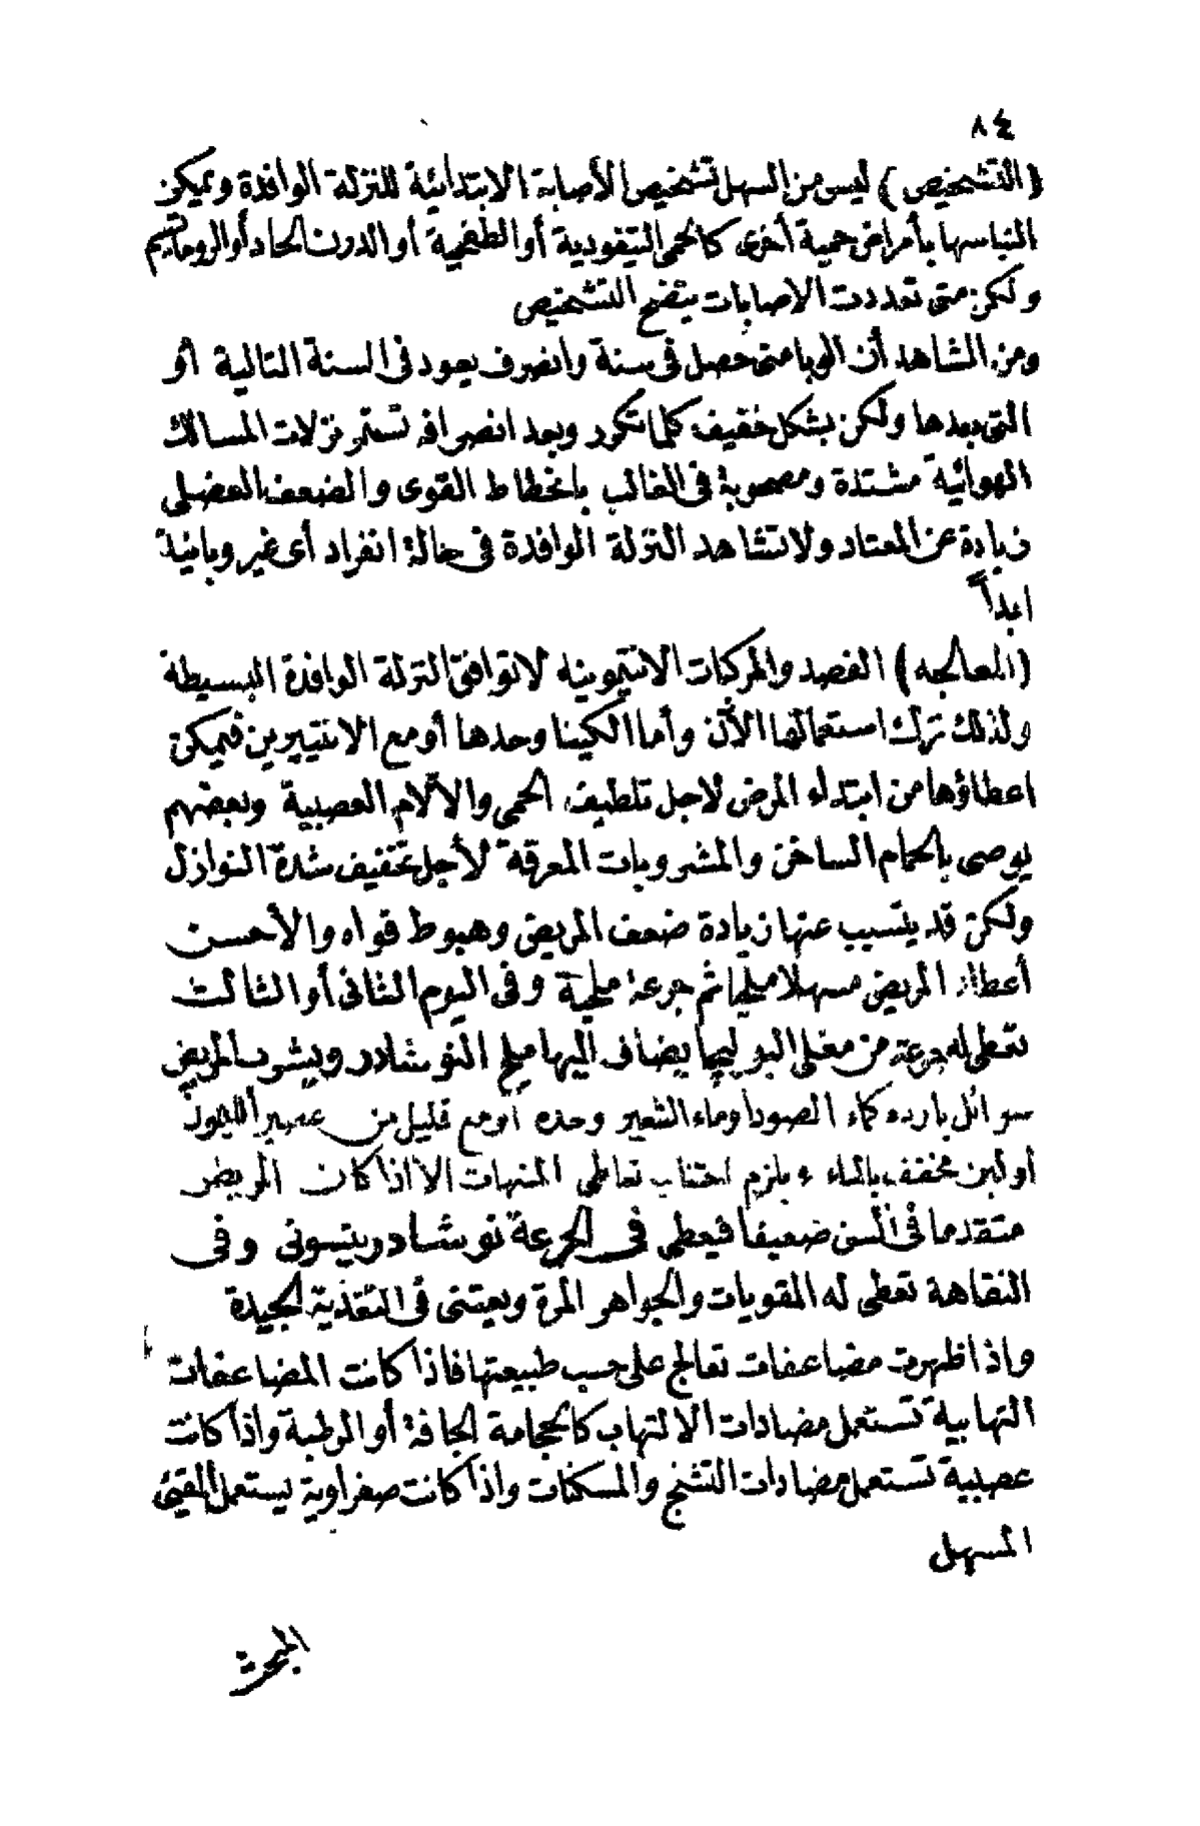 ٨٤
(التشخيص) ليس من السهل تشخيص الأصابة الابتدائية للنزلة الوافدة ويمكن
التباسها بأمراض حمية أخرى كالحمى التيفودية أو الطفحية أو الدرن الحاد أو الروماتيزم
ولكن متى تعددت الاصابات يتضح التشخيص
ومن المشاهد أن الوبا متى حصل فى سنة وانصرف يعود فى السنة التالية أو
التى بعدها ولكن بشكل خفيف كلما تكرر وبعد انصرافه تستمر نزلات المسالك
الهوائية مشتدة ومصحوبة فى الغالب بانحطاط القوى والضعف العضلى
زيادة عن المعتاد ولا تشاهد النزلة الوافدة فى حالة انفراد أى غير وبائية
ابداً
(المعالجه) الفصد والمركبات الانتيمونيه لا توافق النزلة الوافدة البسيطة
ولذلك ترك استعمالها الآن وأما الكينا وحدها أو مع الانتيپيرين فيمكن
اعطاؤها من ابتداء المرض لاجل تلطيف الحمى والآلام العصبية وبعضهم
يوصى بالحمام الساخن والمشروبات المعرقة لأجل تخفيف شدة النوازل
ولكن قد يتسبب عنها زيادة ضعف المريض وهبوط قواه والأحسن
أعطاء المريض مسهلا ملحيا ثم جرعة ملحية وفى اليوم الثانى أو الثالث
تعطى له جرعة من مغلى البوليجالا يضاف اليها ملح النوشادر ويشرب المريض
سوائل بارده كماء الصودا وماء الشعير وحده أو مع قليل من عصير الليمون
أو لبن مخفف بالماء ويلزم اجتناب تعاطى المنبهات الا اذا كان المريض
متقدما فى السن ضعيفا فيعطى فى الجرعة نوشادر ينسونى وفى
النقاهة تعطى له المقويات والجواهر المرة ويعتنى فى التغذية الجيدة
واذا ظهرت مضاعفات تعالج على حسب طبيعتها فاذا كانت المضاعفات
التهابية تستعمل مضادات الالتهاب كالحجامة الجافة أو الرطبة واذا كانت
عصبية تستعمل مضادات التشنج والمسكنات واذا كانت صفراوية يستعمل المقيئ
المسهل
المبحث